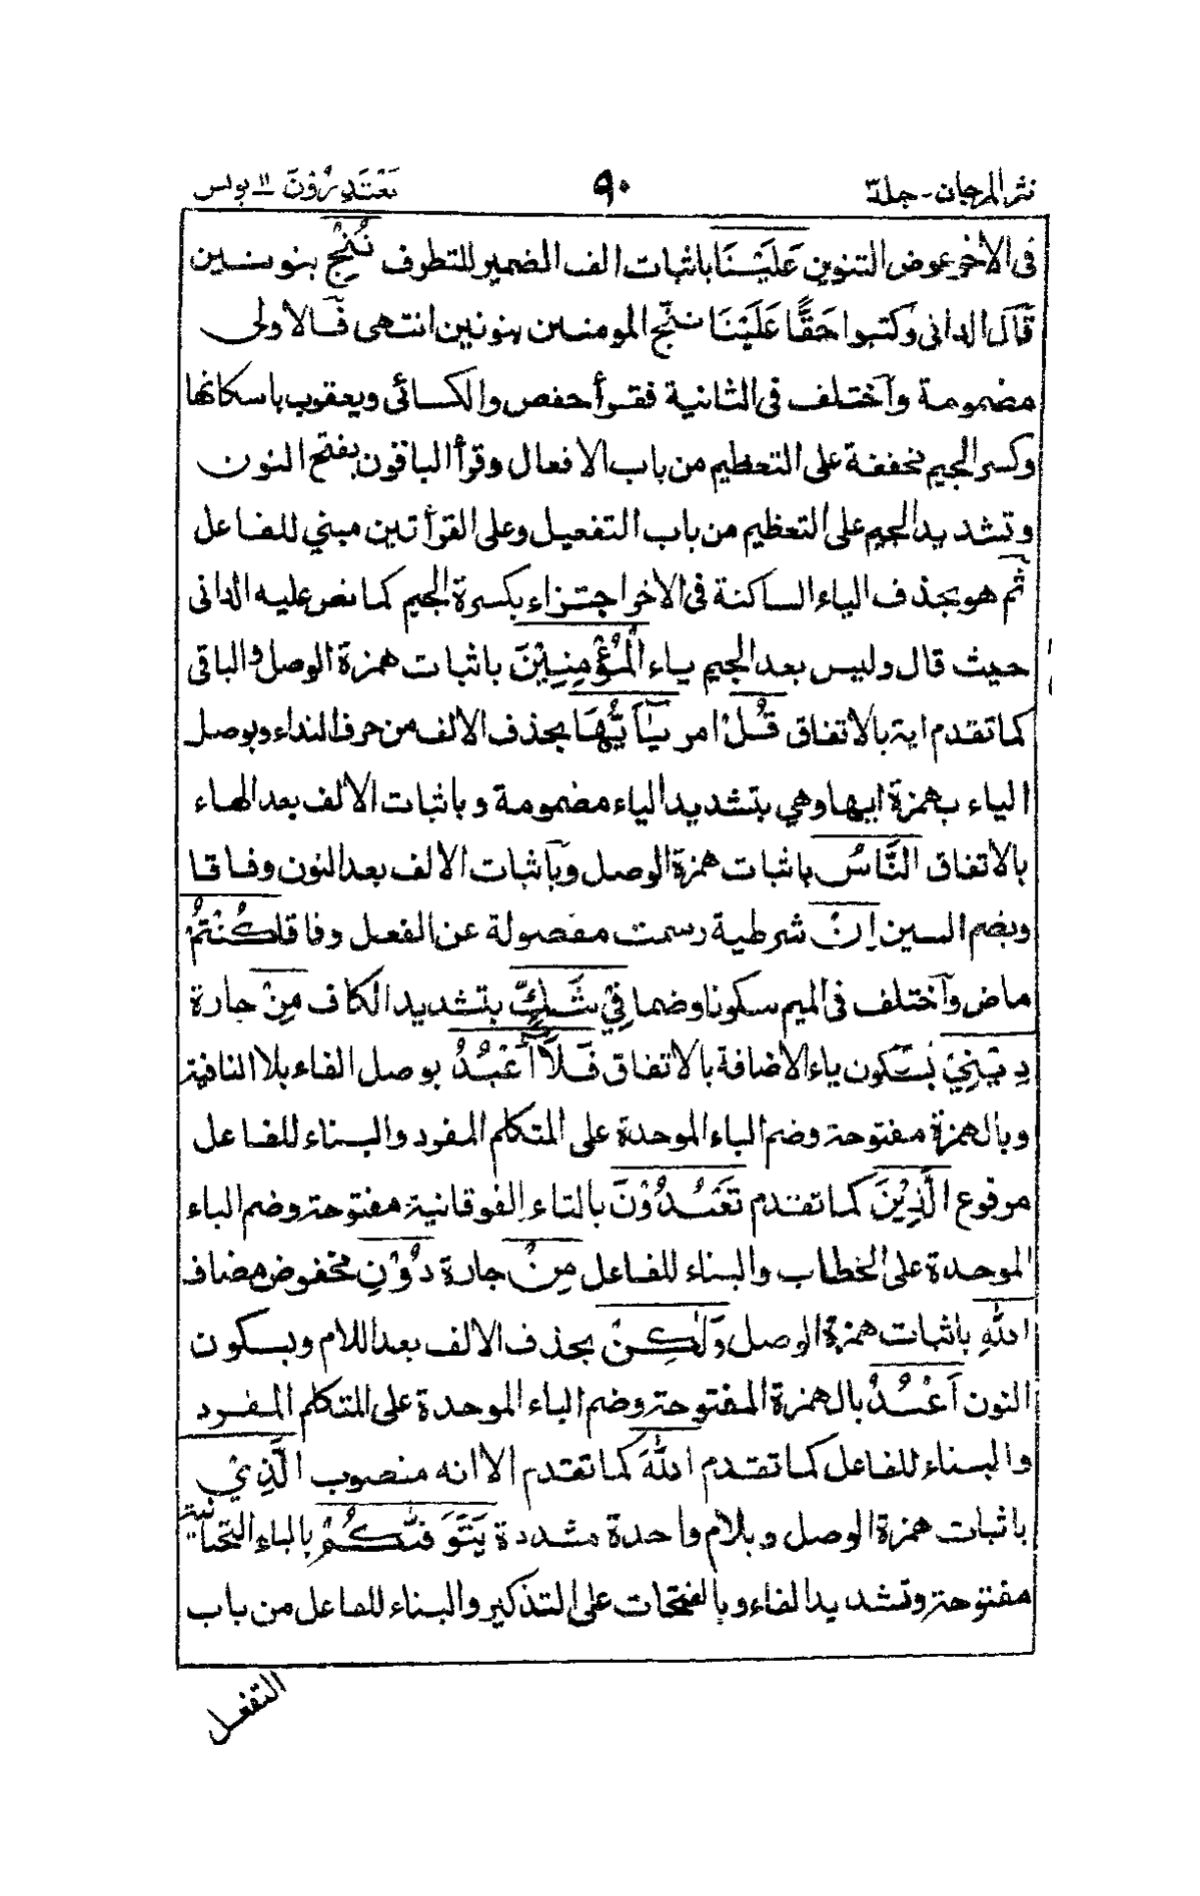 نثر المرجان - جلد ٣ ٩٠ يَعْتَذِرُوْنَ ١١ يونس
فى الاخر عوض التنوين عَلَيْنَا باثبات الف الضمير للتطرف نُنْجِ بنونين
قال الدانى وكتبوا حَقًّا عَلَيْنَا ننج المومنين بنونين انتهى فالاولى
مضمومة واختلف فى الثانية فقرأ حفص والكسائى ويعقوب باسكانها
وكسر الجيم مخففة على التعظيم من باب الافعال وقرأ الباقون بفتح النون
وتشديد الجيم على التعظيم من باب التفعيل وعلى القرأتين مبني للفاعل
ثم هو بحذف الياء الساكنة فى الاخر اجتزاء بكسرة الجيم كما نص عليه الدانى
حيث قال وليس بعد الجيم ياء الْمُؤْمِنِيْنَ باثبات همزة الوصل والباقى
كما تقدم اية بالاتفاق قُلْ امر يٰٓاَيُّهَا بحذف الالف من حرف النداء وبوصل
الياء بهمزة ايها وهي بتشديد الياء مضمومة وباثبات الالف بعد الهاء
بالاتفاق النَّاسُ باثبات همزة الوصل وباثبات الالف بعد النون وفاقا
وبضم السين اِنْ شرطية رسمت مفصولة عن الفعل وفاقا كُنْتُمْ
ماض واختلف فى الميم سكونا وضما فِيْ شَكٍّ بتشديد الكاف مِنْ جارة
دِيْنِيْ بسكون ياء الاضافة بالاتفاق فَلَآ اَعْبُدُ بوصل الفاء بلا النافية
وبالهمزة مفتوحة وضم الباء الموحدة على المتكلم المفرد والبناء للفاعل
مرفوع الَّذِيْنَ كما تقدم تَعْبُدُوْنَ بالتاء الفوقانية مفتوحة وضم الباء
الموحدة على الخطاب والبناء للفاعل مِنْ جارة دُوْنِ مخفوض مضاف
اللهِ باثبات همزة الوصل وَلٰكِنْ بحذف الالف بعد اللام وبسكون
النون اَعْبُدُ بالهمزة المفتوحة وضم الباء الموحدة على المتكلم المفرد
والبناء للفاعل كما تقدم اللهَ كما تقدم الا انه منصوب الَّذِيْ
باثبات همزة الوصل وبلام واحدة مشددة يَتَوَفّٰىكُمْ بالياء التحتانية
مفتوحة وتشديد الفاء وبالفتحات على التذكير والبناء للفاعل من باب
التفعل